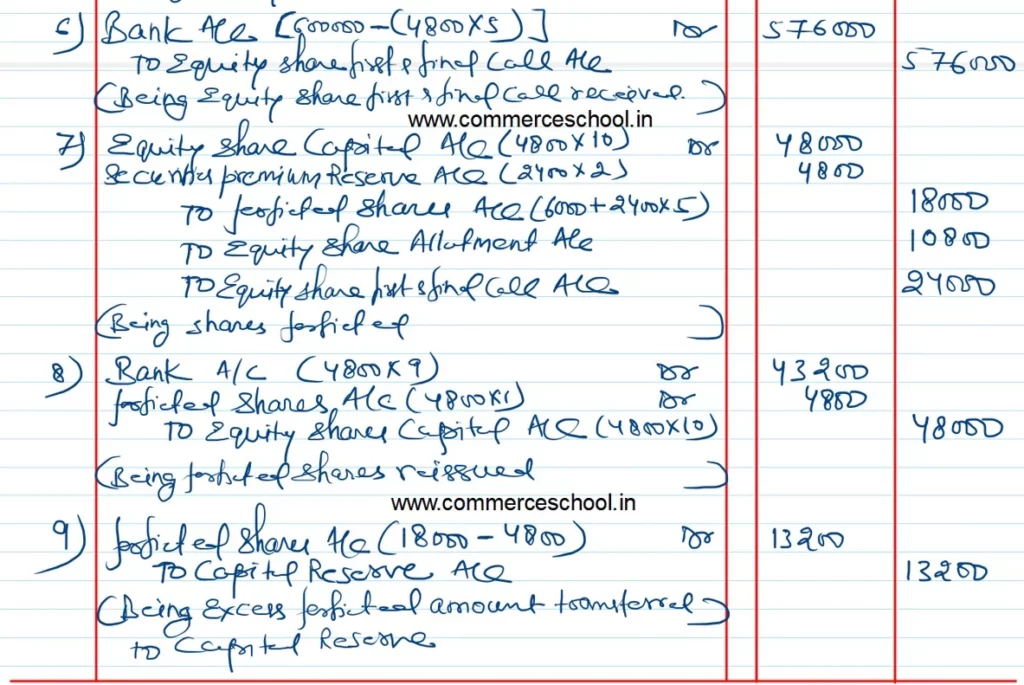 6) Bank A/c [600000-(4800X5)] Dr 576000
To Equity share first & final Call A/c 576000
(Being Equity share first & final Call received.)
www.commerceschool.in
7) Equity share Capital A/c (4800X10) Dr 48000
Securities premium Reserve A/c (2400X2) 4800
To forficted shares A/c (6000+2400X5) 18000
To Equity share Allotment A/c 10800
To Equity share first & final Call A/c 24000
(Being shares forficted)
8) Bank A/C (4800X9) Dr 43200
forficted shares A/c (4800X1) Dr 4800
To Equity shares Capital A/c (4800X10) 48000
(Being forficted shares reissued)
www.commerceschool.in
9) forficted shares A/c (18000-4800) Dr 13200
To Capital Reserve A/c 13200
(Being Excess forficted amount transferred)
to Capital Reserve